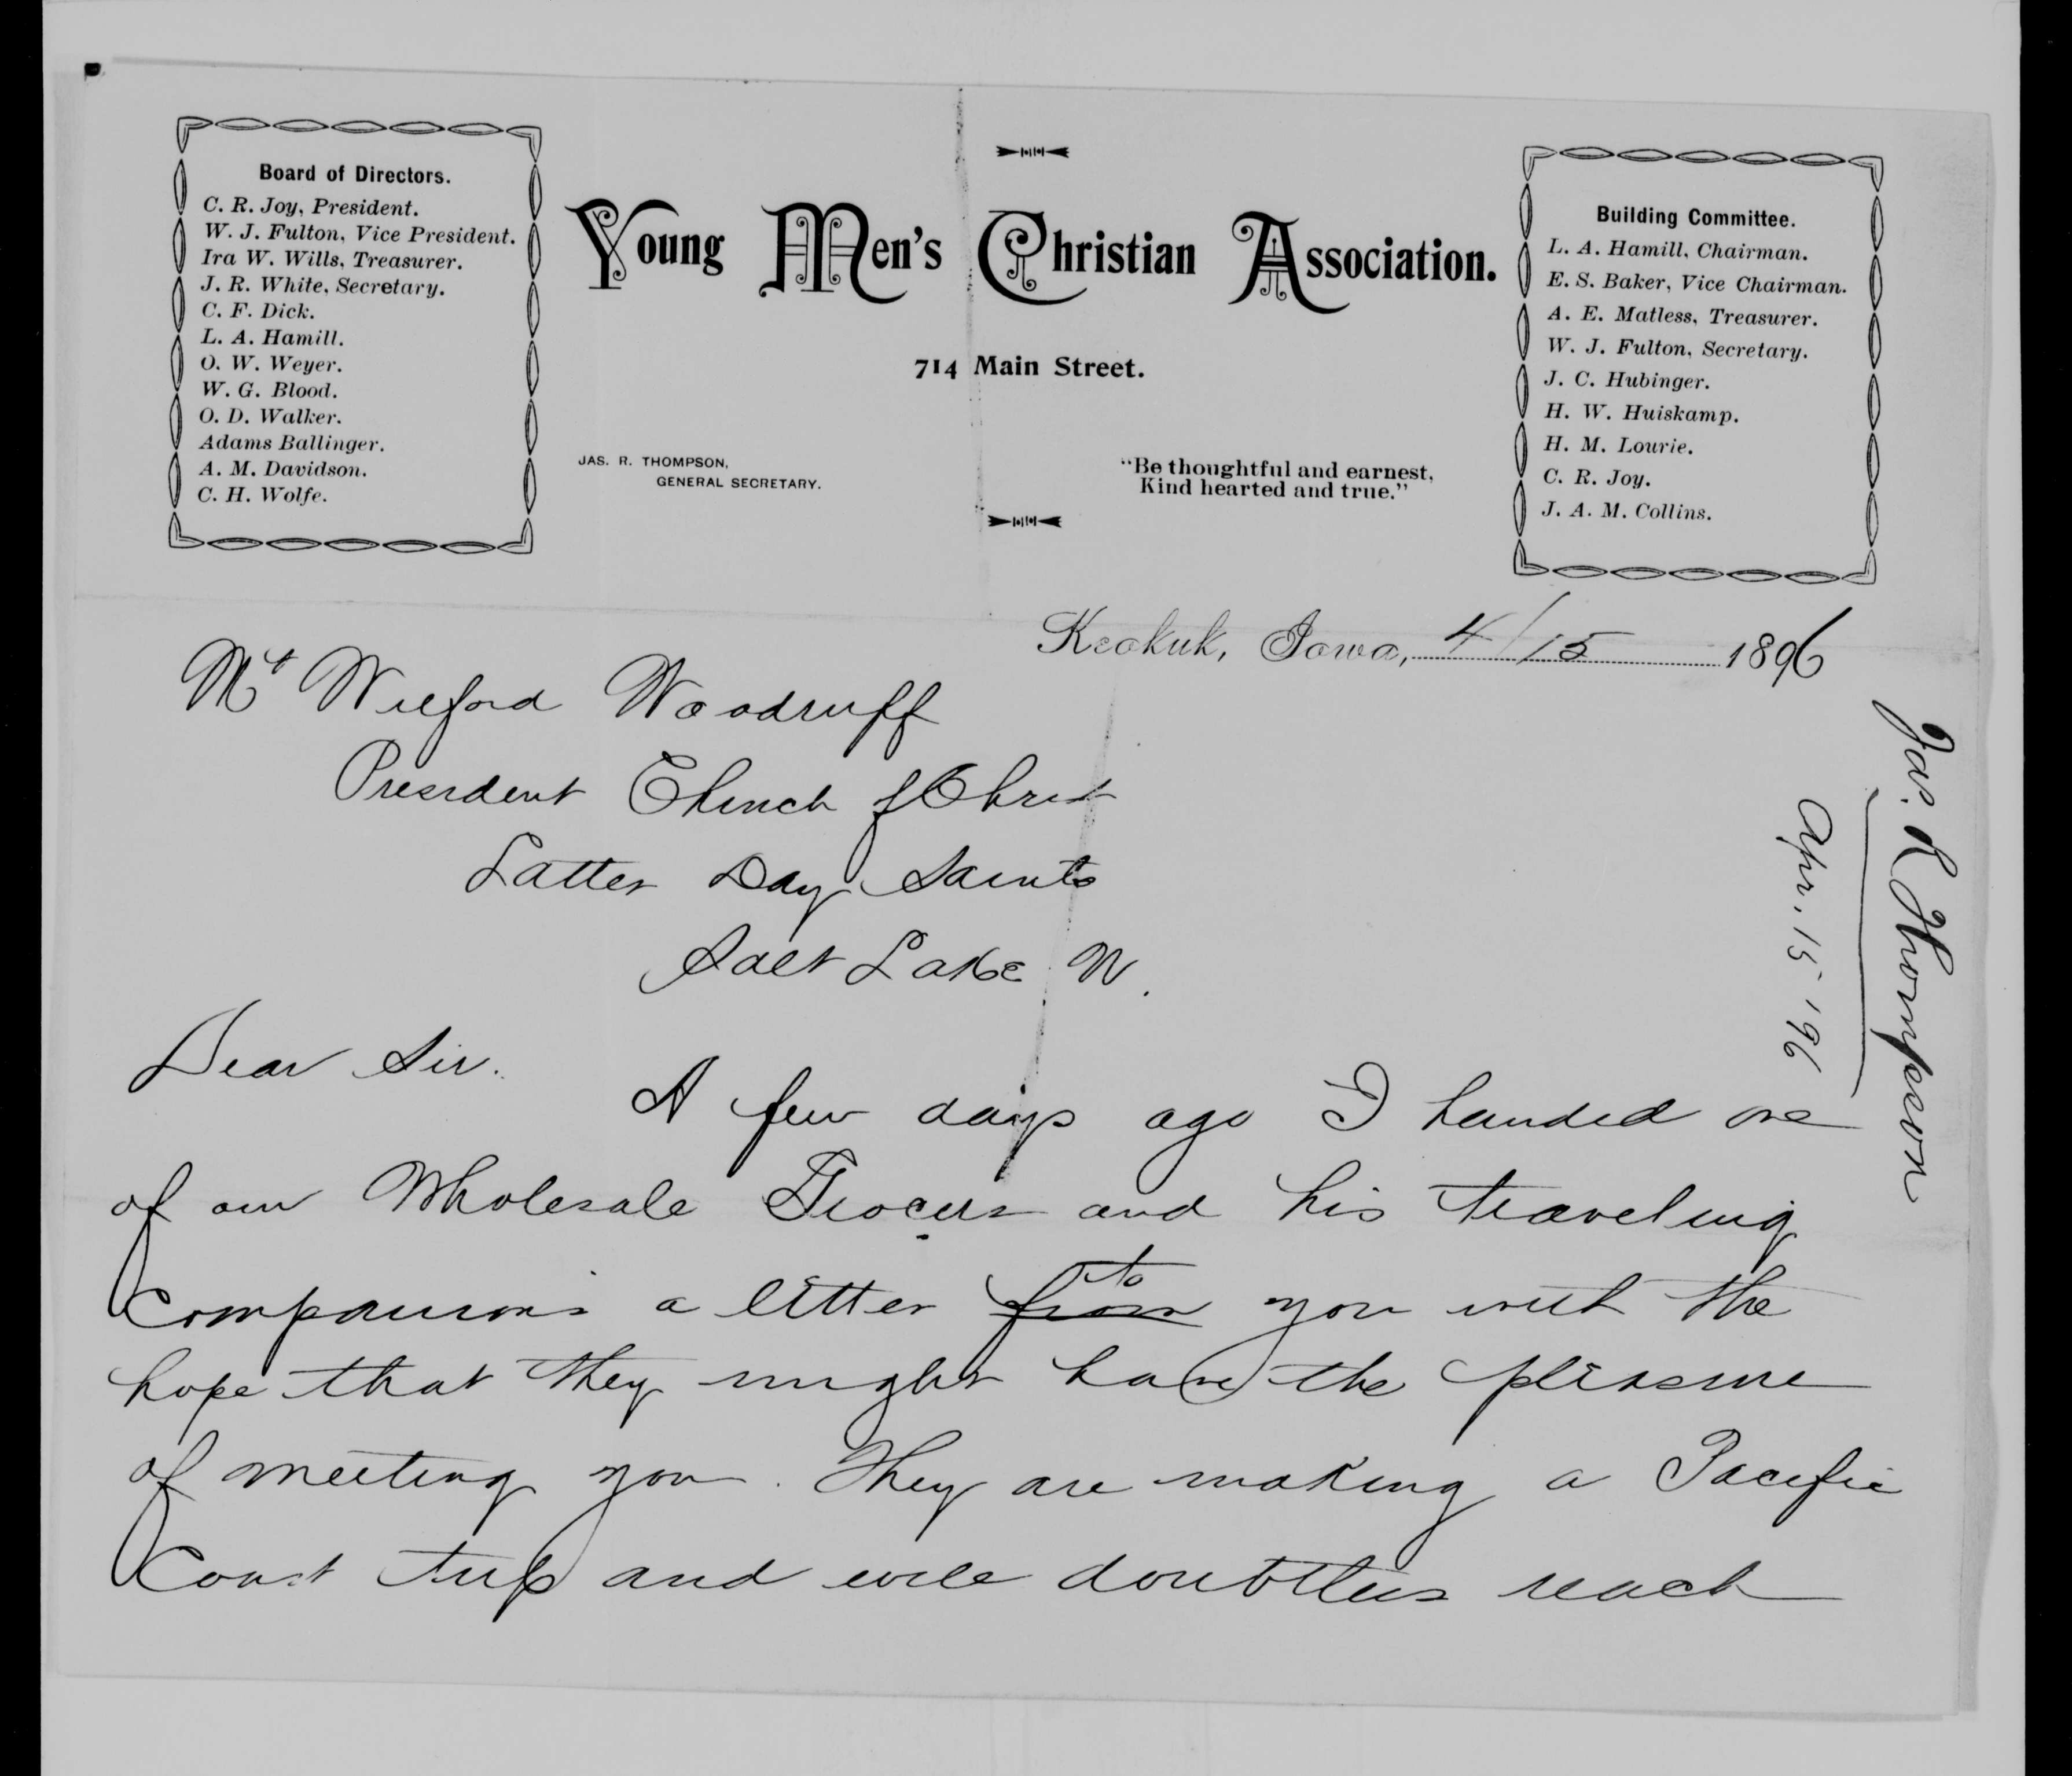 Board of Directors.
C. R. Joy, President.
W. J. Fulton, Vice President.
Ira W. Wills, Treasurer.
J. R. White, Secretary.
C. F. Dick.
L. A. Hamill.
O. W. Weyer.
W. G. Blood.
O. D. Walker.
Adams Ballinger.
A. M. Davidson.
C. H. Wolfe.
Young Men's Christian Association.
714 Main Street.
JAS. R. THOMPSON,
GENERAL SECRETARY.
"Be thoughtful and earnest,
Kind hearted and true."
Building Committee.
L. A. Hamill, Chairman.
E. S. Baker, Vice Chairman.
A. E. Matless, Treasurer.
W. J. Fulton, Secretary.
J. C. Hubinger.
H. W. Huiskamp.
H. M. Lourie.
C. R. Joy.
J. A. M. Collins.
Keokuk, Iowa, 4/15 1896
Mr Wilford Woodruff
President Church of Christ
Latter Day Saints
Salt Lake
Dear Sir.
A few days ago I handed one
of our Wholesale Grocers and his traveling
companions a letter from to you with the
hope that they might have the pleasure
of meeting you. They are making a Pacific
Coast trip and will doubtless reach
Jas. R Thompson
Apr. 15 '96